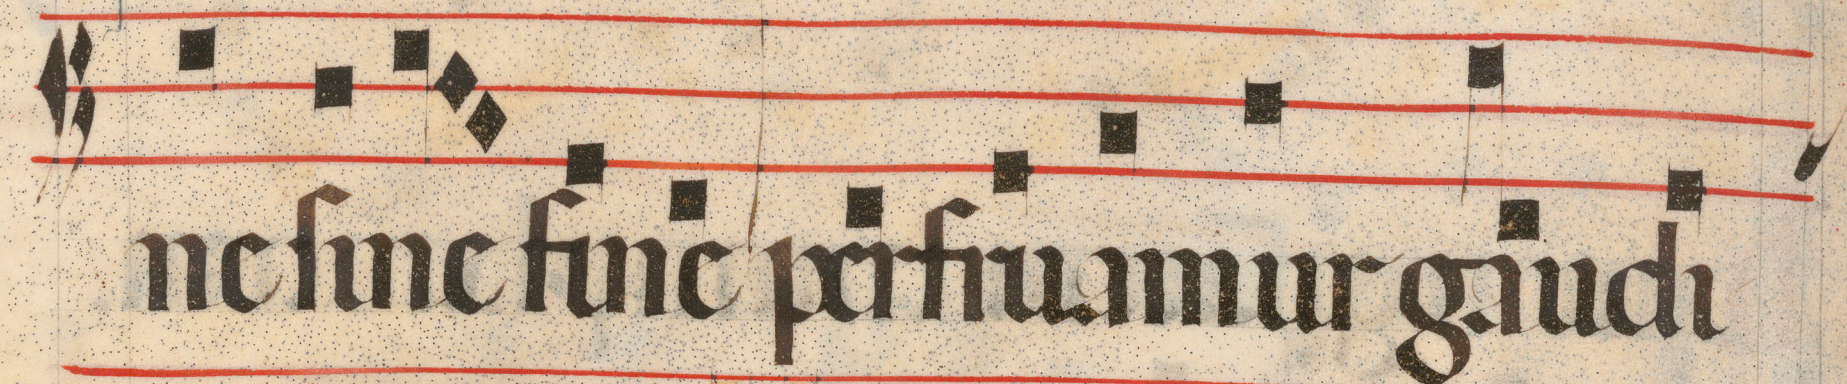 ne sine fine perfruamur gaudi